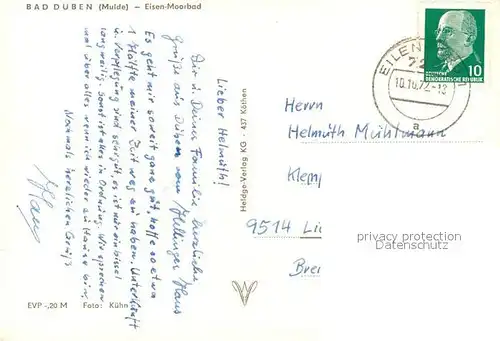 BAD DÜBEN (Mulde) — Eisen-Moorbad
Lieber Helmuth!
Dir u. Deiner Familie herzliche
Grüße aus Düben vom Hans
Es geht mir soweit ganz gut, hoffe so etwa
1 Hälfte meiner Zeit weg zu haben. Unterkunft
u. Verpflegung sind sehr gut, es ist nur ein bissel
langweilig. Sonst ist alles in Ordnung. Wir sprechen
mal über alles wenn ich wieder zu Hause bin.
Nochmals herzlichen Gruß
Hans
EVP -,20 M Foto: Kühn
Heldge-Verlag KG 437 Köthen
EILEN
72
10.10.72-18
a
10
DEUTSCHE
DEMOKRATISCHE REPUBLIK
Herrn
Helmuth Mühlmann
Klemp
9514 Lie
Brei
privacy protection
Datenschutz